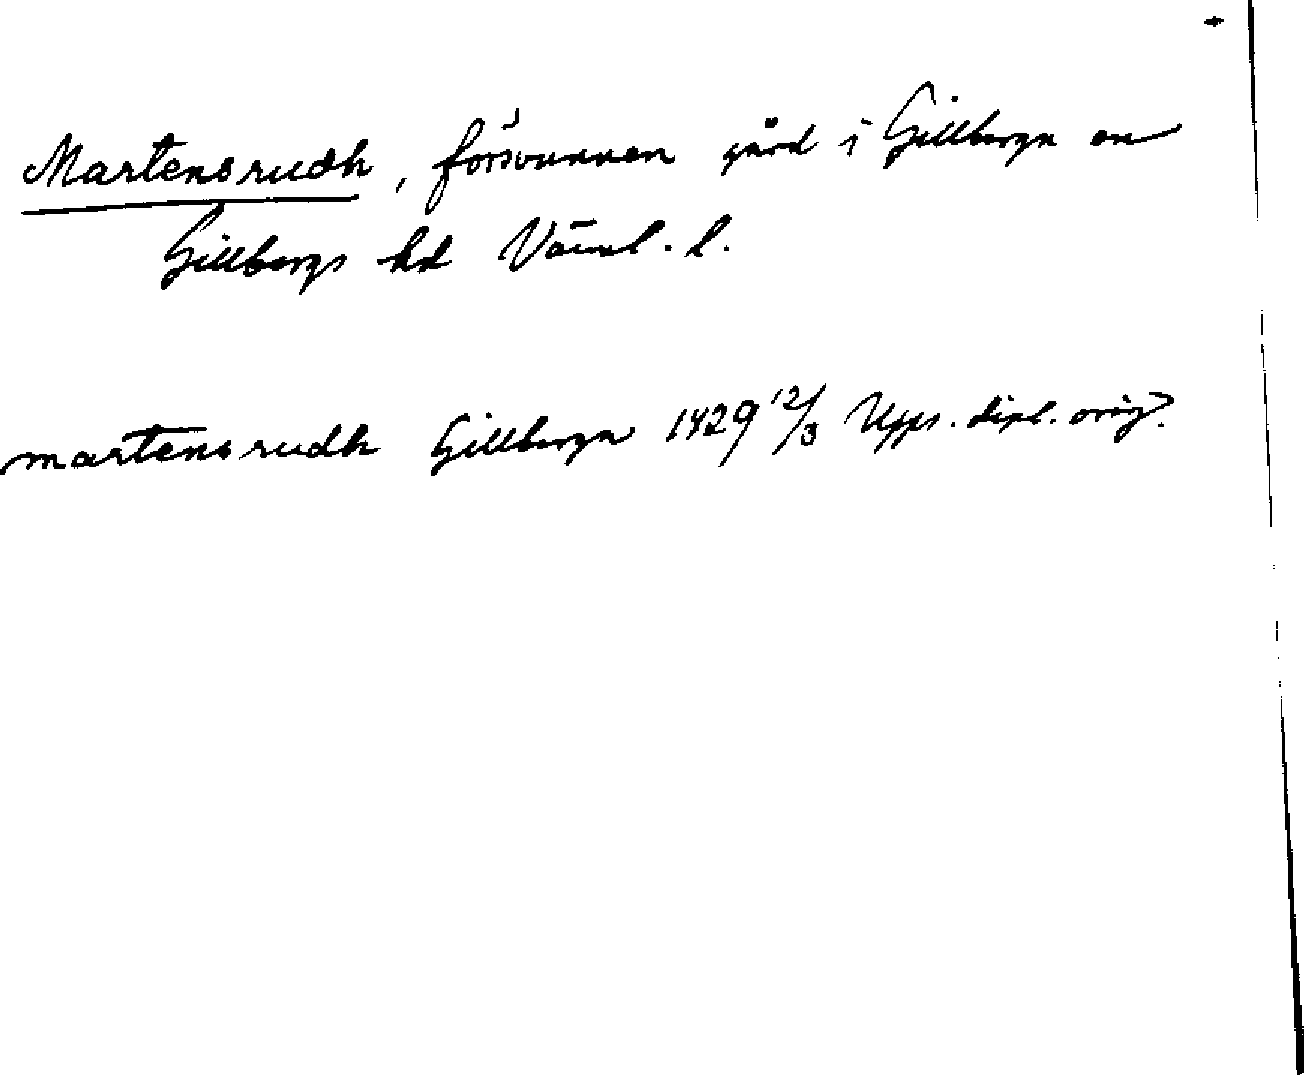 Martensrudh, försvunnen gård i Gillberga sn
Gillbergs hd Värml. l.
martensrudh Gillberga 1429 12/3 Upps. dipl. orig?